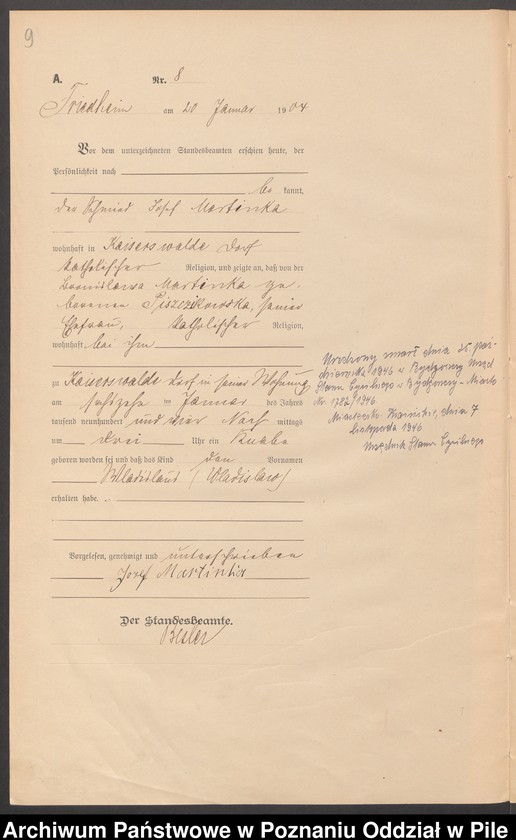 9
A. Nr. 8
Friedheim am 20 Januar 1904
Vor dem unterzeichneten Standesbeamten erschien heute, der
Persönlichkeit nach
be kannt,
der Schmied Josef Martinka
wohnhaft in Kaiserswalde Dorf
katholischer Religion, und zeigte an, daß von der
Bronislawa Martinka ge-
borenen Piszczikowska, seiner
Ehefrau, katholischer Religion,
wohnhaft bei ihm
zu Kaiserswalde Dorf in seiner Wohnung
am Januar des Jahres
tausend neunhundert und vier Nach mittags
um drei Uhr ein Knabe
geboren worden sei und daß das Kind den Vornamen
Wladislaus (Wladislaw)
erhalten habe.
Vorgelesen, genehmigt und unterschrieben
Josef Martinka
Der Standesbeamte.
Besler
Urodzony zmarł dnia 25 paź-
dziernika 1946 w Bydgoszczy Urząd
Stanu Cywilnego w Bydgoszczy - Miasto
Nr. 1782/1946
Miasteczko Krajeńskie, dnia 7
listopada 1946
Urzędnik Stanu Cywilnego
Archiwum Państwowe w Poznaniu Oddział w Pile